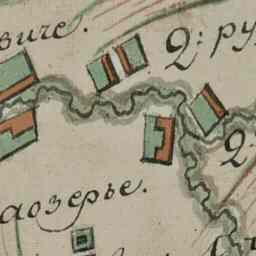 виче.
2: ру
2:
аозерье.